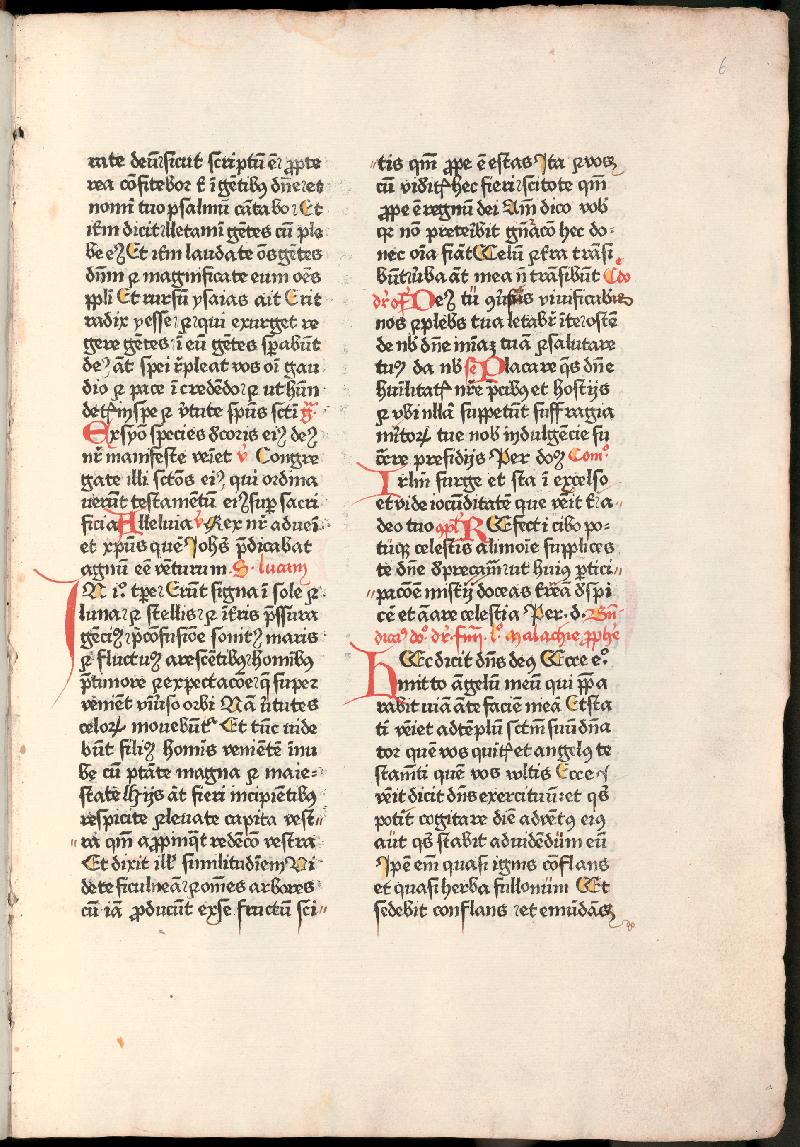 6
rate deū sicut scriptū ē ꝓpte
rea cōfitebor t̄ ī gētibꝯ dn̄e et
nomī tuo psalmū cātabo Et
itm̄ dicit lletamī gētes cū ple
be eꝯ Et itm̄ laudate ōs gētes
dn̄m ⁊ magnificate eum oēs
ppl̄i Et rursū ysaias ait Erit
radix yesse ⁊ qui exurget re
gere gētes ī eū gētes sꝑabūt
deꝯ āt spei r̄pleat vos oī gau
dio ⁊ pace ī credēdo ⁊ ut hūn
detis īn spe ⁊ v̄tute spūs scti gͣ.
Ex syō species d̄coris eiꝯ deꝯ
nr̄ manifeste veīet v̄ Congre
gate illi sctōs eiꝯ qui ordina
uerūt testamētū eiꝯ suꝑ sacri
ficia Alleluia v̄ Rex nr̄ aduēī
et xp̄us quē Johs̄ p̄dicabat
agnū eē vēturum S. lucam
N i° tꝑe Erūt signa ī sole ⁊
luna ⁊ stellis ⁊ ī tr̄is p̄ssura
gēciꝯ p̄ cōfusiōe sonitꝯ maris
⁊ fluctuꝯ arescētibꝯ hom̄ibꝯ
p̄ timore ⁊ expectacōe q̄ super
venient vniūso orbi Nā v̄tutes
celoꝝ mouebūtʳ Et tūc vide
būt filiꝯ homīs venīētē ī nu
be cū ptāte magna ⁊ maie=
state Hijs āt fieri incipiētibꝯ
respicite ⁊ leuate capita vest=
ra qm̄ aꝓpinq̄t redēcō vestra
Et dixit ill' similitudīem Vi
dete ficulneā ⁊ om̄es arbores
cū iā ꝓducūt ex se fructū sci=
tis qm̄ ꝓpe ē estas Ita ⁊ vos
cū viditꝭ hec fieri scitote qm̄
ꝓpe ē regnū dei Am̄ dico vob̄
qꝛ nō preteribit gn̄acō hec do=
nec oīa fiāt Celū ⁊ tr̄a trāsi
būt v̄ba āt mea n̄ trāsibūt Cdo
dr̄ of̄ Deꝯ tū ꝯūsus viuificabis
nos ⁊ plebs tua letabr̄ ī te ostē
de nb̄ dn̄e mīaꝫ tuā ⁊ salutare
tuꝯ da nb̄ se Placare q̄s dn̄e
hūilitatꝭ nr̄e p̄cibꝯ et hostijs
⁊ vbi nllā suppetūt suffragia
m̄itoꝝ tue nob̄ indulgēcie su
cr̄re presidijs Per doꝯ Com°
Irl̄m surge et sta ī excelso
et vide iocūditatē que vēit t̄ a
deo tuo opl̄t REfecti cibo po=
tūqꝫ celestis alimoīe supplices
te dn̄e d̄precam̄ ut huiꝯ ꝑtici=
pacōē mist̄ij doceas tr̄ēa d̄spi
cē et am̄are celestia Per. d. Sn̄=
dica° do° dr̄. fm̄. l°. Malachie ꝓph̄e
HEc dicit dn̄s deꝯ Ecce e°
mitto āgelū meū qui p̄pa
rabit viā āte faciē meā Et sta
ti vēiet ad tēplū sctm̄ suū dn̄a
tor quē vos qui̇tꝭ et angelꝯ te
stamti quē vos vultis Ecce
vēit dicit dn̄s exercituū et q̄s
potit cogitare diē advētꝯ eiꝯ
aut q̄s stabit ad vidēdūm eū
Ip̄e em̄ quasi ignis cōflans
et quasi herba fullonūm Et
sedebit conflans et emūdās